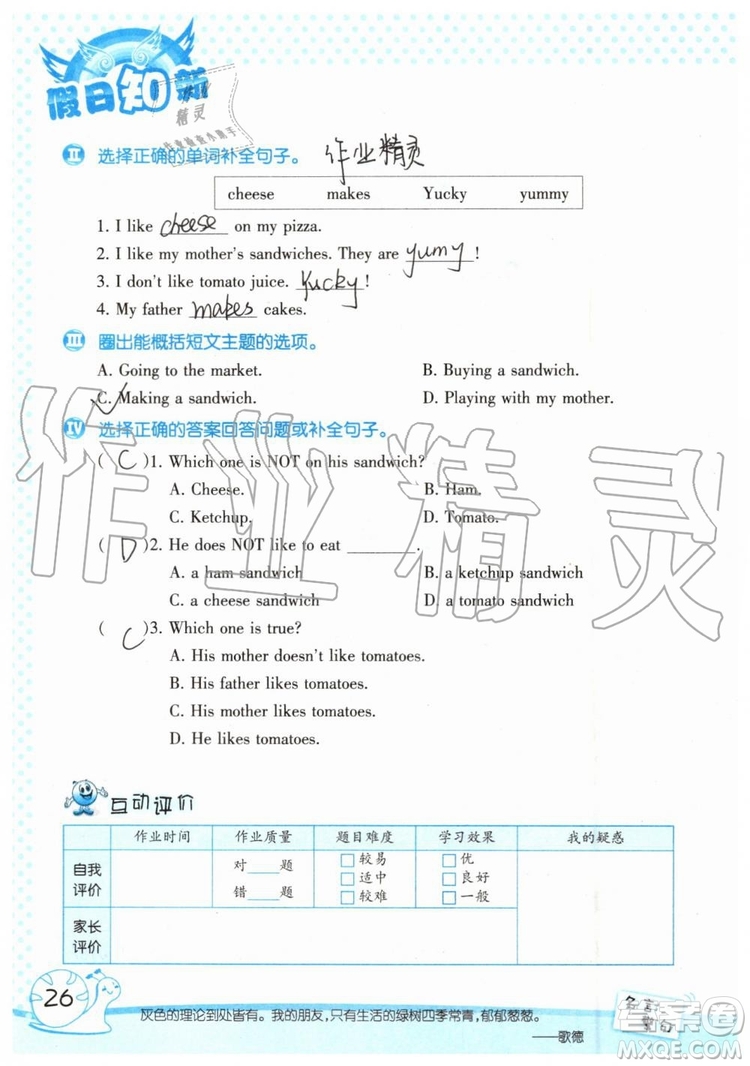 假日知新
作业
精灵
II 选择正确的单词补全句子。 作业精灵
cheese makes Yucky yummy
1. I like cheese on my pizza.
2. I like my mother's sandwiches. They are yumy !
3. I don't like tomato juice. Yucky !
4. My father makes cakes.
III 圈出能概括短文主题的选项。
A. Going to the market. B. Buying a sandwich.
C. Making a sandwich. D. Playing with my mother.
IV 选择正确的答案回答问题或补全句子。
( C )1. Which one is NOT on his sandwich?
A. Cheese. B. Ham.
C. Ketchup. D. Tomato.
( D )2. He does NOT like to eat ________.
A. a ham sandwich B. a ketchup sandwich
C. a cheese sandwich D. a tomato sandwich
( C )3. Which one is true?
A. His mother doesn't like tomatoes.
B. His father likes tomatoes.
C. His mother likes tomatoes.
D. He likes tomatoes.
作业精灵
互动评价
作业时间 作业质量 题目难度 学习效果 我的疑惑
自我评价 对____题 □较易 □优
错____题 □适中 □良好
□较难 □一般
家长评价
26
灰色的理论到处皆有。我的朋友,只有生活的绿树四季常青,郁郁葱葱。
——歌德
名言警句
答案圈
MXQE.COM